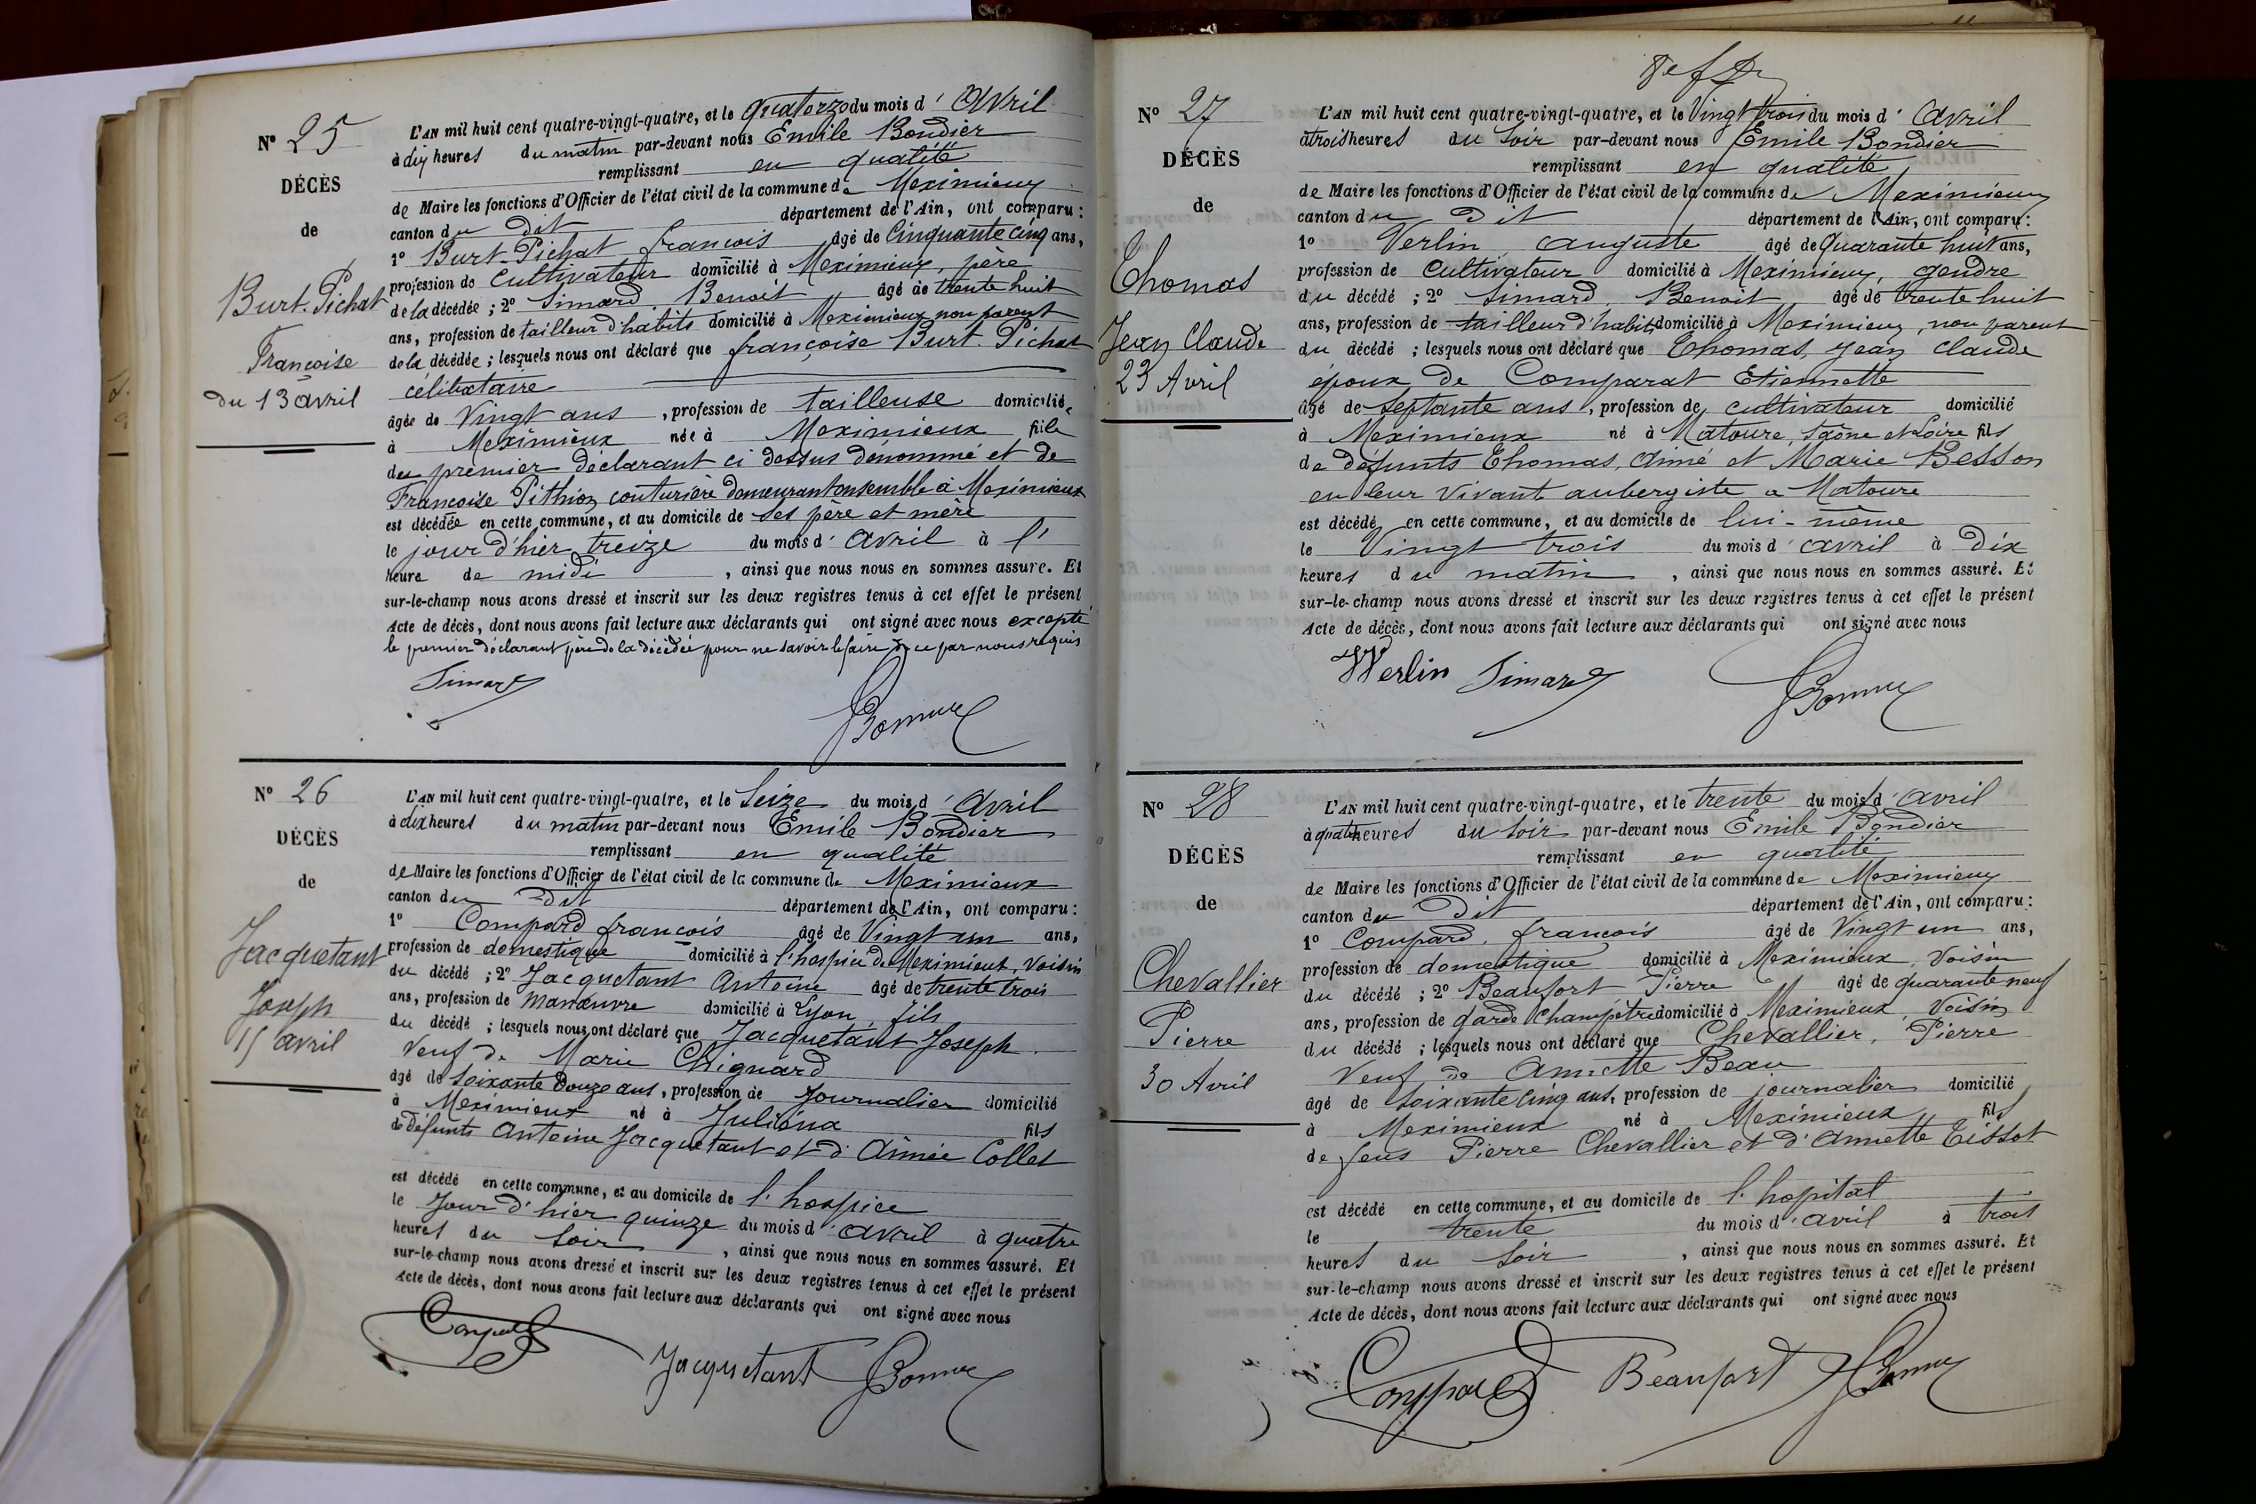 Nº 25
DÉCÈS
de
Burt-Pichat
Françoise
du 13 avril
L'AN mil huit cent quatre-vingt-quatre, et le quatorze du mois d' avril
à dix heures du matin par-devant nous Emile Bondier
remplissant en qualité
de Maire les fonctions d'Officier de l'état civil de la commune de Meximieux
canton du Dit département de l'Ain, ont comparu :
1º Burt-Pichat françois âgé de Cinquante cinq ans,
profession de cultivateur domicilié à Meximieux, père
de la décédée ; 2º Simard, Benoit âgé de trente huit
ans, profession de tailleur d'habits domicilié à Meximieux non parent
de la décédée ; lesquels nous ont déclaré que françoise Burt-Pichat
célibataire
âgée de Vingt ans, profession de tailleuse domiciliée
à Meximieux née à Meximieux fille
du premier déclarant ci dessus dénommé et de
Françoise Pithion couturière demeurant ensemble à Meximieux
est décédée en cette commune, et au domicile de ses père et mère
le jour d'hier treize du mois d' avril à l'
heure de midi, ainsi que nous nous en sommes assuré. Et
sur-le-champ nous avons dressé et inscrit sur les deux registres tenus à cet effet le présent
Acte de décès, dont nous avons fait lecture aux déclarants qui ont signé avec nous excepté
le premier déclarant père de la décédée pour ne savoir le faire de ce par nous requis
Simard
Nº 26
DÉCÈS
de
Jacquetant
Joseph
15 avril
L'AN mil huit cent quatre-vingt-quatre, et le Seize du mois d' avril
à dix heures du matin par-devant nous Emile Bondier
remplissant en qualité
de Maire les fonctions d'Officier de l'état civil de la commune de Meximieux
canton du Dit département de l'Ain, ont comparu :
1º Compard françois âgé de Vingt un ans,
profession de domestique domicilié à l'hospice de Meximieux, Voisin
du décédé ; 2º Jacquetant Antoine âgé de trente trois
ans, profession de manœuvre domicilié à Lyon, fils
du décédé ; lesquels nous ont déclaré que Jacquetant Joseph
Veuf de Marie Chignard
âgé de soixante douze ans, profession de Journalier domicilié
à Meximieux né à Juliéna fils
de défunts Antoine Jacquetant et d' Aimée Collet
est décédé en cette commune, et au domicile de l'hospice
le Jour d'hier quinze du mois d' avril à quatre
heures du soir, ainsi que nous nous en sommes assuré. Et
sur-le-champ nous avons dressé et inscrit sur les deux registres tenus à cet effet le présent
Acte de décès, dont nous avons fait lecture aux déclarants qui ont signé avec nous
Compard Jacquetant
Nº 27
DÉCÈS
de
Thomas
Jean Claude
23 Avril
L'AN mil huit cent quatre-vingt-quatre, et le Vingt trois du mois d' avril
à trois heures du soir par-devant nous Emile Bondier
remplissant en qualité
de Maire les fonctions d'Officier de l'état civil de la commune de Meximieux
canton du Dit département de l'Ain, ont comparu :
1º Verlin auguste âgé de quarante huit ans,
profession de cultivateur domicilié à Meximieux, gendre
du décédé ; 2º Simard, Benoit âgé de trente huit
ans, profession de tailleur d'habits domicilié à Meximieux, non parent
du décédé ; lesquels nous ont déclaré que Thomas, Jean Claude
époux de Comparat Etiennette
âgé de septante ans, profession de cultivateur domicilié
à Meximieux né à Matoure, Saône et Loire fils
de défunts Thomas, Aimé et Marie Besson
en leur Vivant aubergiste a Matoure
est décédé en cette commune, et au domicile de lui-même
le Vingt trois du mois d' avril à Dix
heures du matin, ainsi que nous nous en sommes assuré. Et
sur-le-champ nous avons dressé et inscrit sur les deux registres tenus à cet effet le présent
Acte de décès, dont nous avons fait lecture aux déclarants qui ont signé avec nous
Werlin Simard
Nº 28
DÉCÈS
de
Chevallier
Pierre
30 Avril
L'AN mil huit cent quatre-vingt-quatre, et le trente du mois d' avril
à quatre heures du soir par-devant nous Emile Bondier
remplissant en qualité
de Maire les fonctions d'Officier de l'état civil de la commune de Meximieux
canton du Dit département de l'Ain, ont comparu :
1º Compard, françois âgé de Vingt un ans,
profession de domestique domicilié à Meximieux, Voisin
du décédé ; 2º Beaufort Pierre âgé de quarante neuf
ans, profession de garde Champêtre domicilié à Meximieux, Voisin
du décédé ; lesquels nous ont déclaré que Chevallier, Pierre
Veuf de Annette Beau
âgé de soixante cinq ans, profession de journalier domicilié
à Meximieux né à Meximieux fils
de feus Pierre Chevallier et d' Annette Tissot
est décédé en cette commune, et au domicile de l'hopital
le trente du mois d' avril à trois
heures du soir, ainsi que nous nous en sommes assuré. Et
sur-le-champ nous avons dressé et inscrit sur les deux registres tenus à cet effet le présent
Acte de décès, dont nous avons fait lecture aux déclarants qui ont signé avec nous
Compard Beaufort